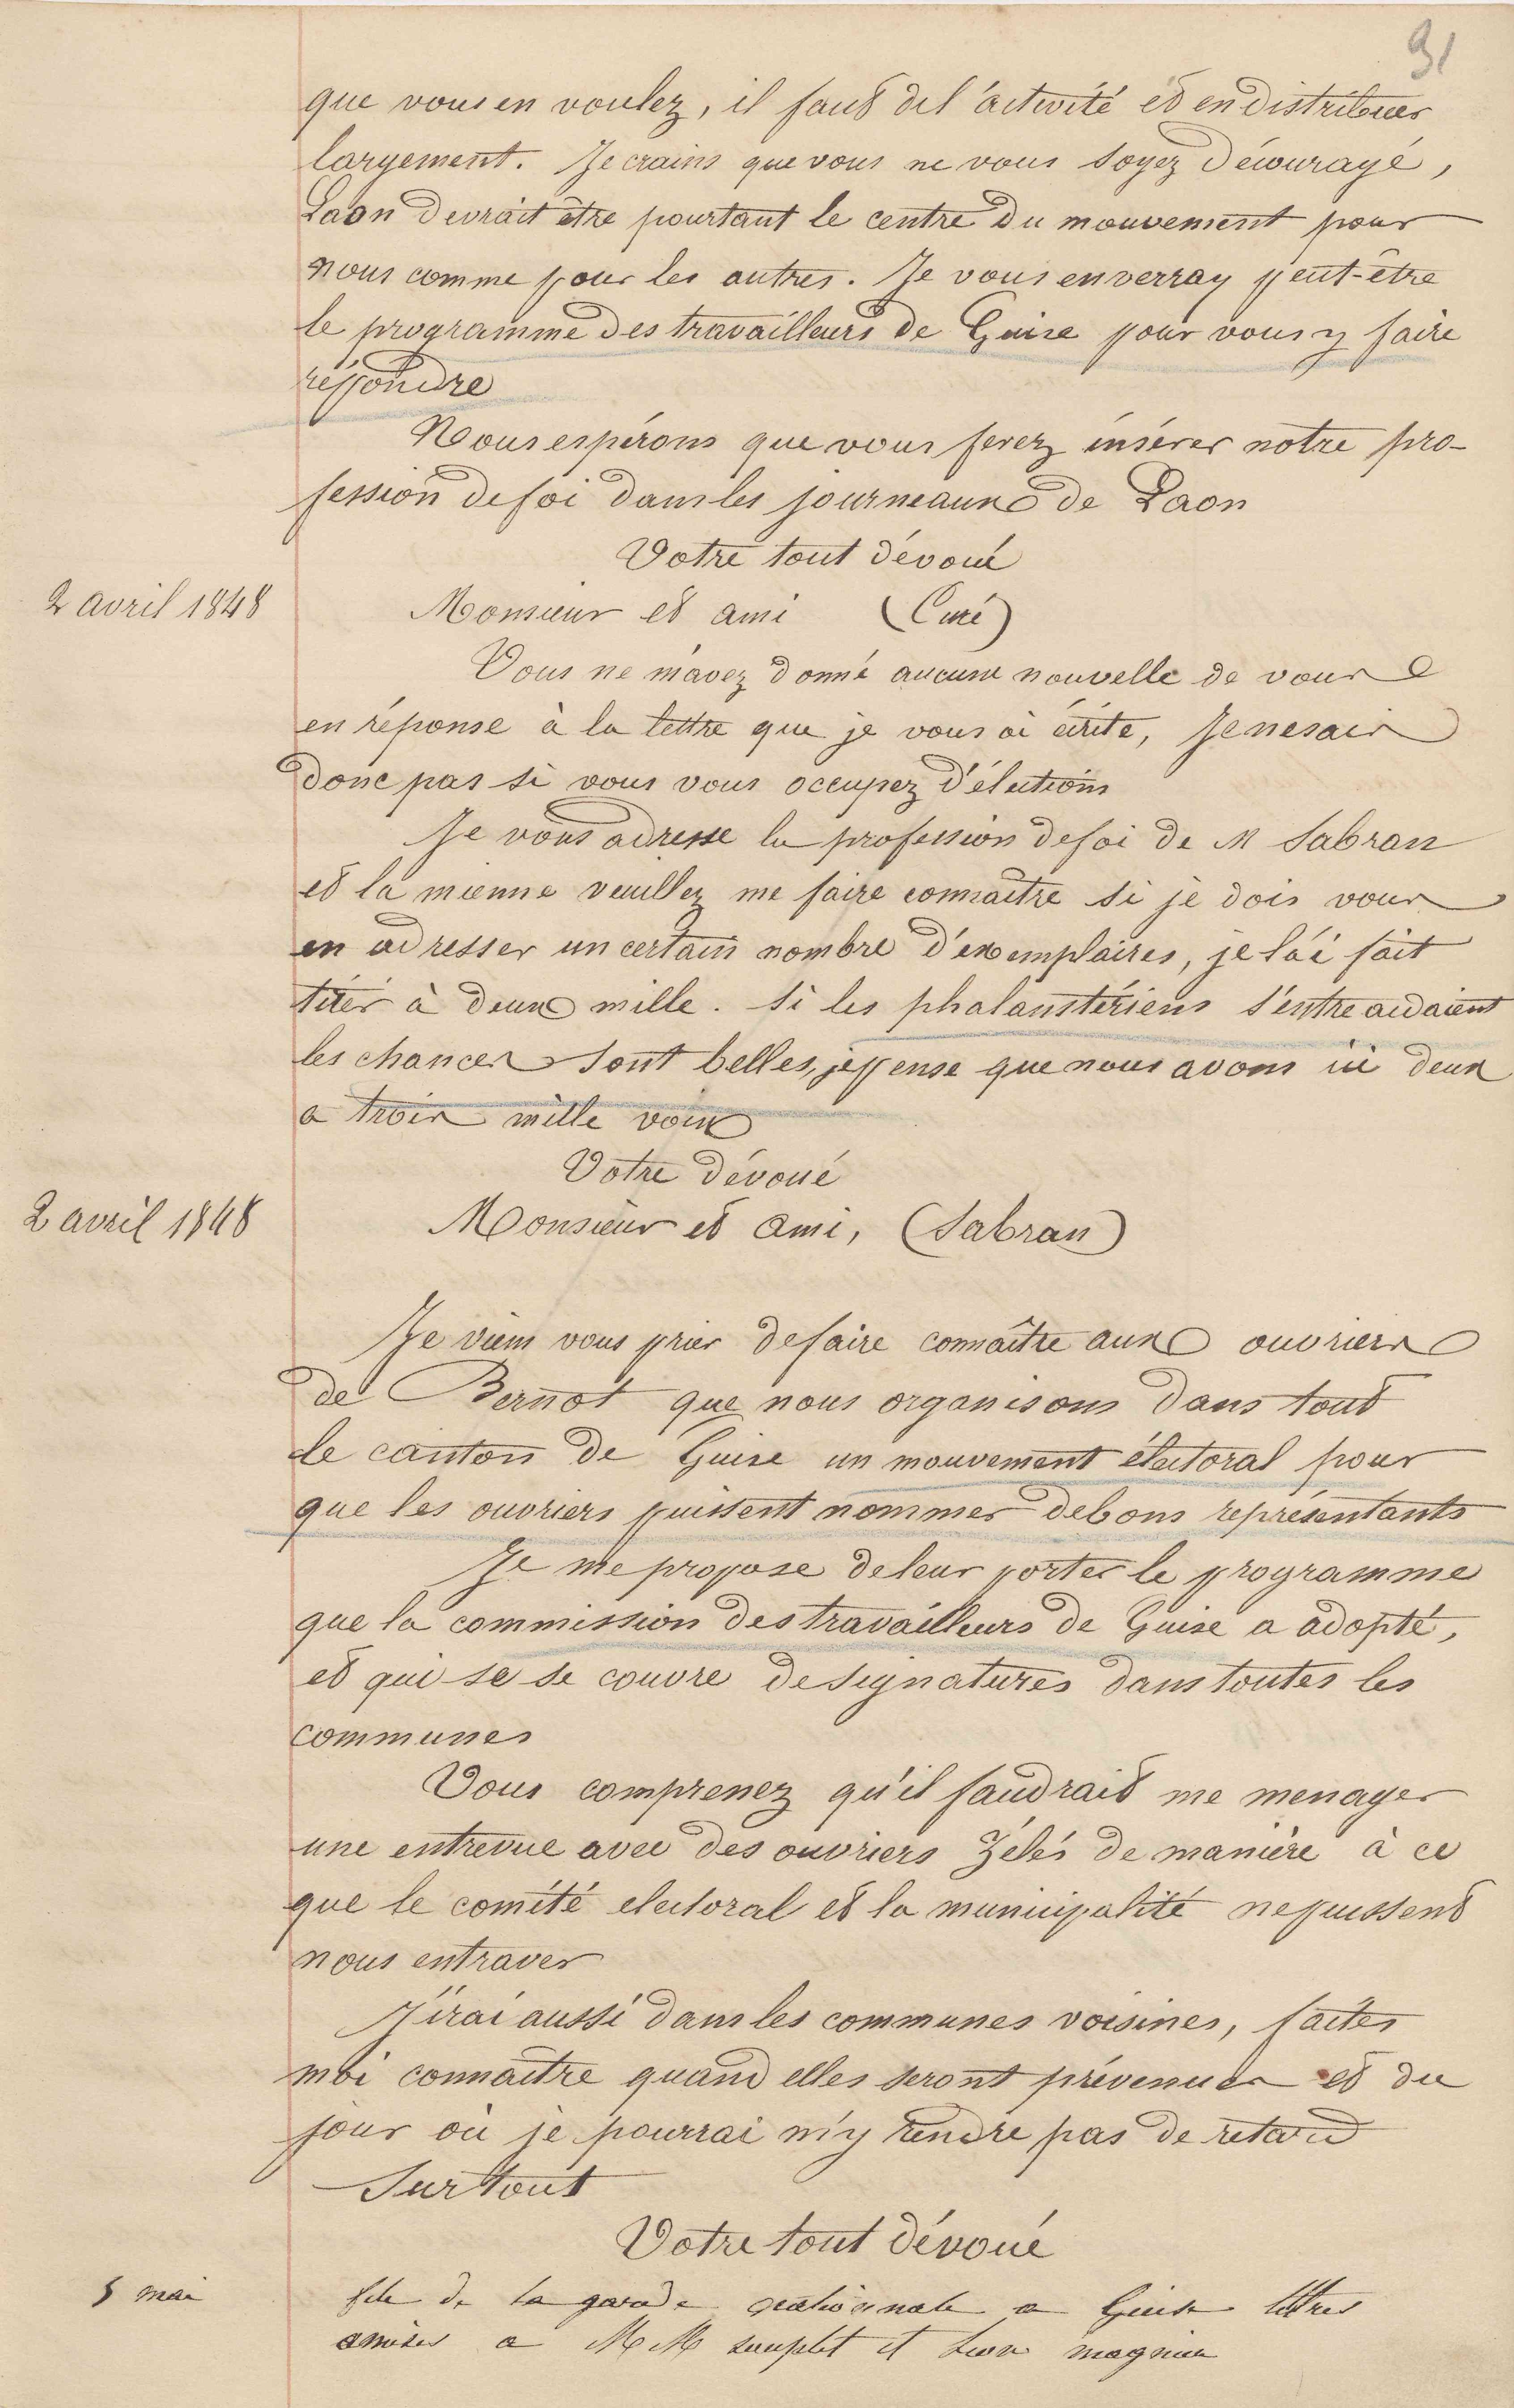 91
que vous en voulez, il faut del'activité et en distribuer
largement. Je crains que vous ne vous soyez découragé,
Laon devrait être pourtant le centre du mouvement pour
nous comme pour les autres. Je vous enverray peut-être
le programme des travailleurs de Guise pour vous y faire
répondre
Nous espérons que vous ferez insérer notre pro-
fession de foi dans les journeaux de Laon
Votre tout dévoué
2 avril 1848
Monsieur et ami (Curé)
Vous ne m'avez donné aucune nouvelle de vous
en réponse à la lettre que je vous ai écrite, Je ne sais
donc pas si vous vous occupez d'élections
Je vous adresse la profession de foi de M Sabran
et la mienne veuillez me faire connaître si je dois vous
en adresser un certain nombre d'exemplaires, je l'ai fait
tirer à deux mille. Si les phalanstériens s'entre aidaient
les chances sont belles, je pense que nous avons ici deux
a trois mille voix
Votre dévoué
2 avril 1848
Monsieur et ami, (Sabran)
Je viens vous prier de faire connaître aux ouvriers
de Bernot que nous organisons dans tout
le canton de Guise un mouvement électoral pour
que les ouvriers puissent nommer de bons représentants
Je me propose de leur porter le programme
que la commission des travailleurs de Guise a adopté,
et qui se se couvre de signatures dans toutes les
communes
Vous comprenez qu'il faudrait me menager
une entrevue avec des ouvriers zélés de manière à ce
que le comité electoral et la municipalité ne puissent
nous entraver
J'irai aussi dans les communes voisines, faites
moi connaître quand elles seront prévenues et du
jour où je pourrai m'y rendre pas de retard
Surtout
Votre tout dévoué
5 mai
fete de la garde nationnale a Guise lettres
amises a MM souplet et Leon magnier